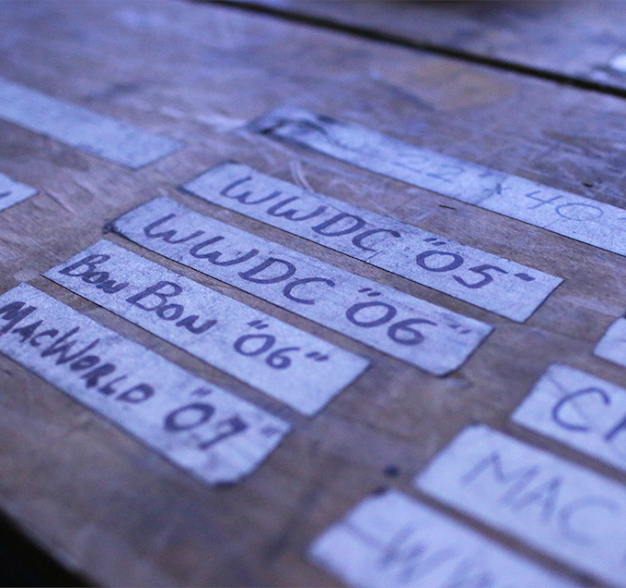 22" x 40
WWDC "05"
WWDC "06"
BON BON "06"
MACWORLD "07"
MAC